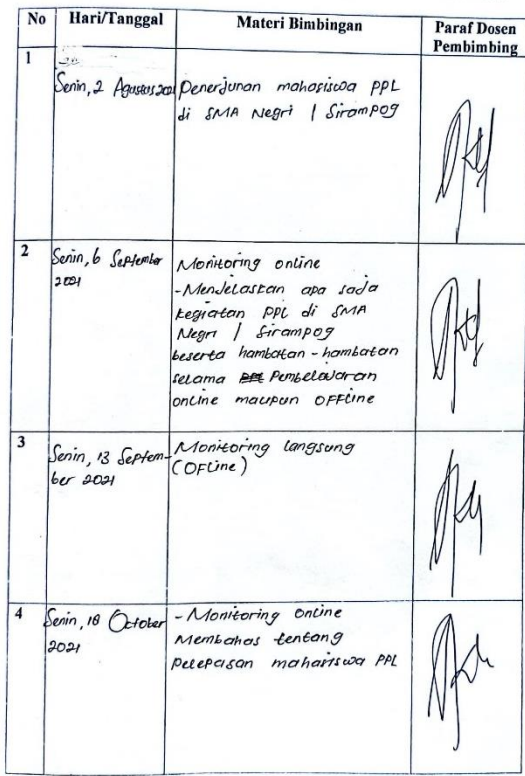 No Hari/Tanggal Materi Bimbingan Paraf Dosen
Pembimbing
1
Senin, 2 Agustus 2021 Penerjunan mahasiswa PPL
di SMA Negri 1 Sirampog
2 Senin, 6 September Monitoring online
2021
-Menjelaskan apa saja
kegiatan PPL di SMA
Negri 1 Sirampog
beserta hambatan - hambatan
selama Pembelajaran
online maupun OFFline
3 Senin, 13 Septem- Monitoring langsung
ber 2021 (OFline)
4 Senin, 18 October - Monitoring online
2021 Membahas tentang
pelepasan mahasiswa PPL